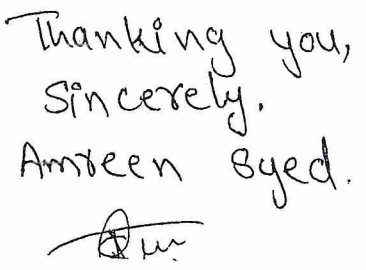 Thanking you,
Sincerely.
Amreen Syed.